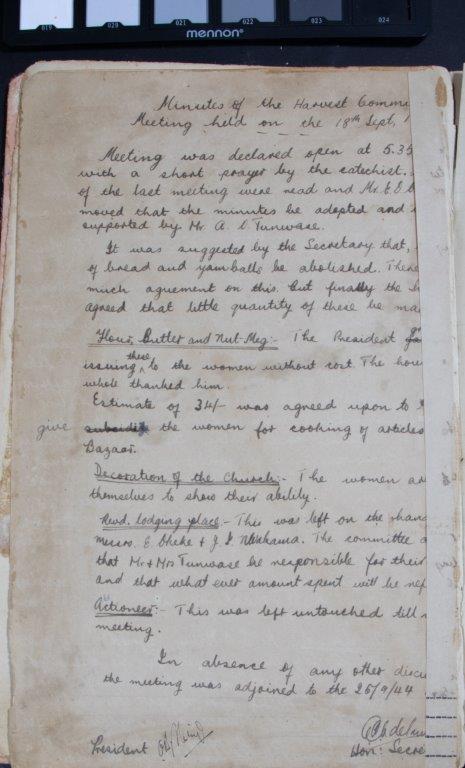 019 020 021 022 023 024
mennon
Minutes of the Harvest Comm
Meeting held on the 18th Sept,
Meeting was declared open at 5.35
with a short prayer by the catechist.
of the last meeting were read and Mr. E.
moved that the minutes be adopted and
supported by Mr. A. Tunwase.
It was suggested by the Secretary that,
of bread and yamballs be abolished. There
much aguement on this. But finally the
agreed that little quantity of these be ma
Flour, Butter and Nut-Meg:- The President
these
issuing to the women without cost. The hou
whole thanked him.
Estimate of 34/- was agreed upon to
give the women for cooking of articles
Bazaar.
Decoration of the Church:- The women ar
themselves to show their ability.
Revd. lodging place:- This was left on the
messrs. E. Okeke & J. The committee
that Mr & Mrs Tunwase be responsible for their
and that what ever amount spent will be
Actioneer:- This was left untouched till
meeting.
In absence of any other discu
the meeting was adjoined to the 25/9/44
President
Hon: Secre